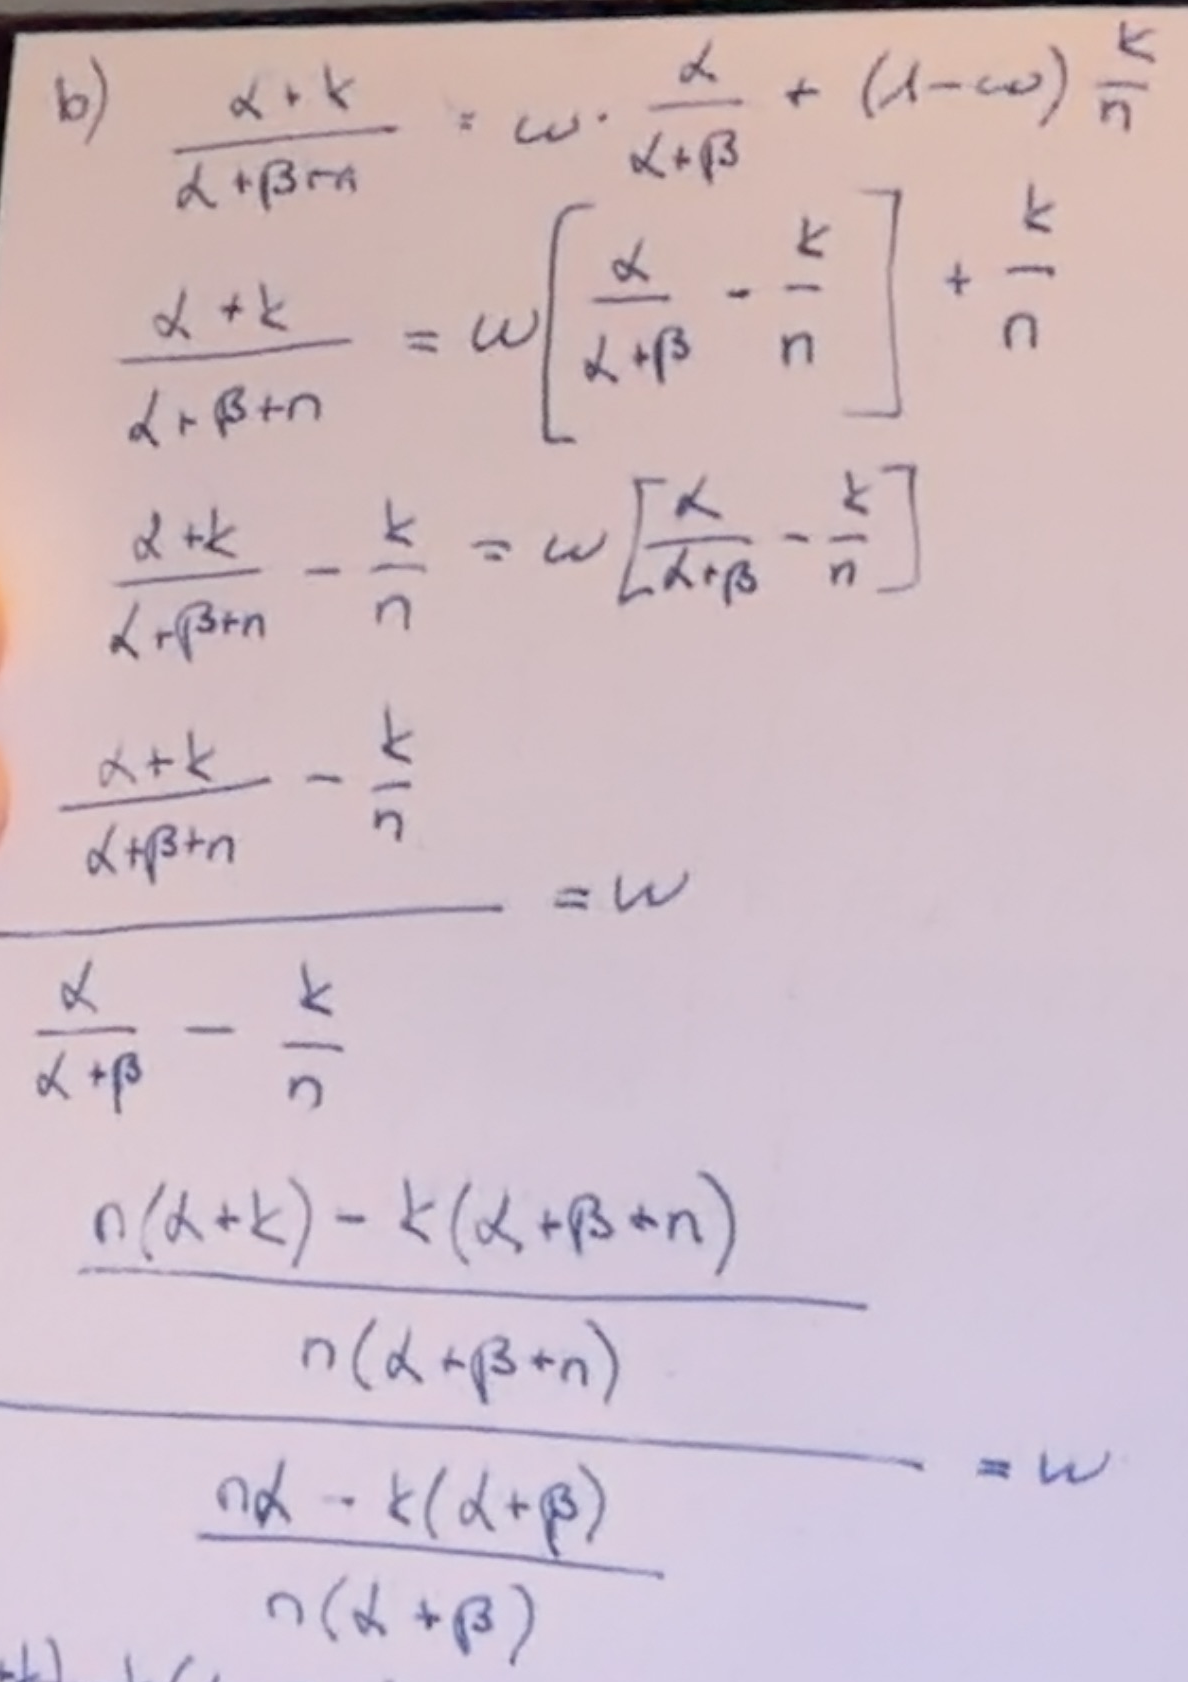 b) (α+k)/(α+β+n) = w · α/(α+β) + (1-w) k/n
(α+k)/(α+β+n) = w[α/(α+β) - k/n] + k/n
(α+k)/(α+β+n) - k/n = w[α/(α+β) - k/n]
((α+k)/(α+β+n) - k/n)/(α/(α+β) - k/n) = w
((n(α+k) - k(α+β+n))/(n(α+β+n)))/((nα - k(α+β))/(n(α+β))) = w